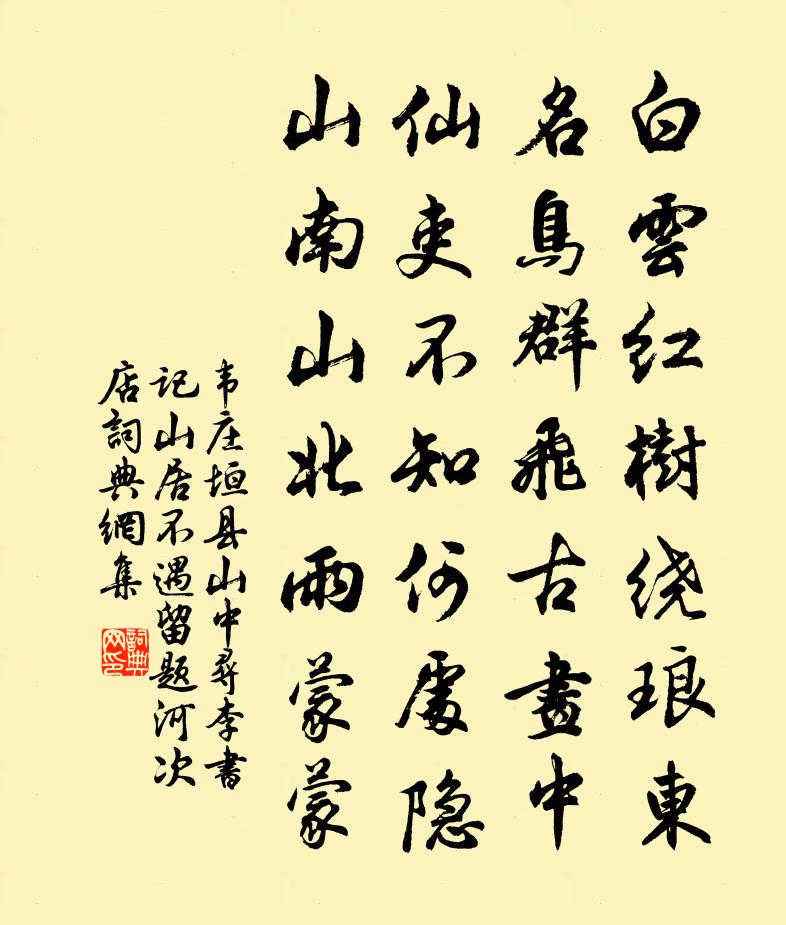 白雲紅樹绕琅東
名鳥群飛古畫中
仙吏不知何處隐
山南山北雨蒙蒙
韦庄垣县山中尋李書
记山居不遇留题河次
店詞典網集
詞典网印